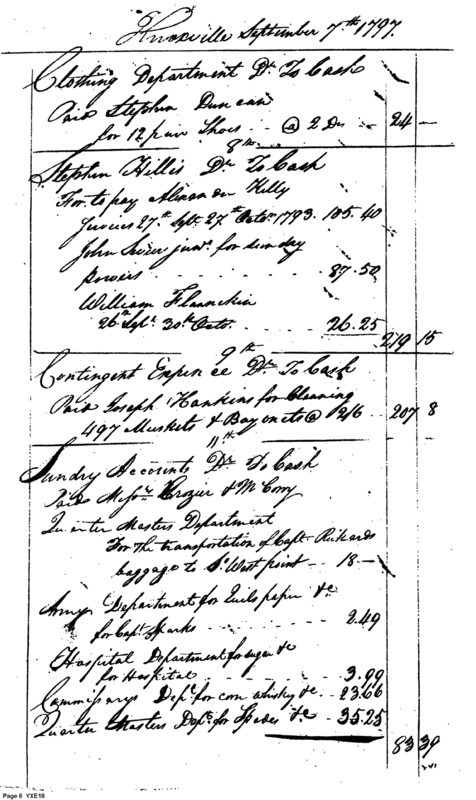 Knoxville September 7th 1797.
Clothing Department Dr. To Cash
Paid Stephen Duncan
for 12 pair Shoes .. @ 2 Drs 24 —
8th
Stephen Hillis Dr. To Cash
For to pay Alexander Kelly
27th Sept. 27th Octor. 1793. 105.40
John Sevier junr. for sunday
Powers 87.50
William
26th Sept. 30th Octo. 26.25
219 15
9th
Contingent Expence Dr. To Cash
Paid Joseph Hankins for Cleaning
497 Muskets & Bayonets @ 2/6 207 8
11th
Sundry Accounts Dr. To Cash
Paid Messrs. Crozier & McCorry
Quarter Masters Department
For the transportation of Capt. Rickards
baggage to So. West point — 18 —
Army Department for Quils paper &c
for Capt. Sparks 2.49
Hospital Department for sugar &c
for Hospital 3.99
Commissarys Dept. for corn whisky &c 23.66
Quarter Masters Dept. for Spades &c 35.25
83 39
Page 6 YXE18